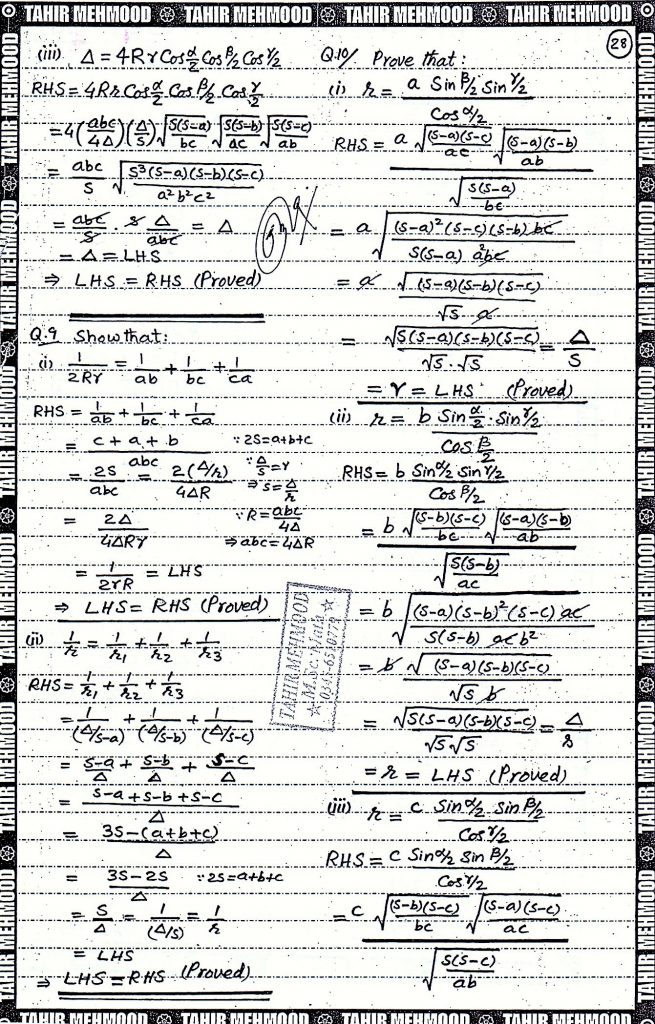 TAHIR MEHMOOD TAHIR MEHMOOD TAHIR MEHMOOD TAHIR MEHMOOD
28
(iii) Δ = 4Rr Cos α/2 Cos β/2 Cos γ/2
RHS = 4Rr Cos α/2 Cos β/2 Cos γ/2
= 4(abc/4Δ)(Δ/s) √(s(s-a)/bc) √(s(s-b)/ac) √(s(s-c)/ab)
= abc/s √(s³(s-a)(s-b)(s-c)/a²b²c²)
= abc/s . s Δ/abc = Δ
= Δ = LHS
⇒ LHS = RHS (Proved)
Q.9 Show that:
(i) 1/2Rr = 1/ab + 1/bc + 1/ca
RHS = 1/ab + 1/bc + 1/ca
= (c + a + b)/abc ∵ 2s = a+b+c
= 2s/abc = 2(Δ/r)/4ΔR ∵ Δ/s = r ⇒ s = Δ/r
= 2Δ/4ΔRr ∵ R = abc/4Δ ⇒ abc = 4ΔR
= 1/2rR = LHS
⇒ LHS = RHS (Proved)
(ii) 1/r = 1/r1 + 1/r2 + 1/r3
RHS = 1/r1 + 1/r2 + 1/r3
= 1/(Δ/s-a) + 1/(Δ/s-b) + 1/(Δ/s-c)
= s-a/Δ + s-b/Δ + s-c/Δ
= (s-a+s-b+s-c)/Δ
= (3s-(a+b+c))/Δ
= (3s-2s)/Δ ∵ 2s = a+b+c
= s/Δ = 1/(Δ/s) = 1/r
= LHS
⇒ LHS = RHS (Proved)
Q.10/ Prove that:
(i) r = a Sin β/2 Sin γ/2 / Cos α/2
RHS = a √((s-a)(s-c)/ac) √((s-a)(s-b)/ab) / √(s(s-a)/bc)
= a √((s-a)²(s-c)(s-b) bc / s(s-a) a²bc)
= a √((s-a)(s-b)(s-c)) / √s . a
= √(s(s-a)(s-b)(s-c)) / √s . √s = Δ/s
= r = LHS (Proved)
(ii) r = b Sin α/2 . Sin γ/2 / Cos β/2
RHS = b Sin α/2 Sin γ/2 / Cos β/2
= b √((s-b)(s-c)/bc) √((s-a)(s-b)/ab) / √(s(s-b)/ac)
= b √((s-a)(s-b)²(s-c) ac / s(s-b) ac b²)
= b √((s-a)(s-b)(s-c)) / √s b
= √(s(s-a)(s-b)(s-c)) / √s √s = Δ/s
= r = LHS (Proved)
(iii) r = c Sin α/2 Sin β/2 / Cos γ/2
RHS = c Sin α/2 Sin β/2 / Cos γ/2
= c √((s-b)(s-c)/bc) √((s-a)(s-c)/ac) / √(s(s-c)/ab)
TAHIR MEHMOOD
TAHIR MEHMOOD TAHIR MEHMOOD TAHIR MEHMOOD TAHIR MEHMOOD